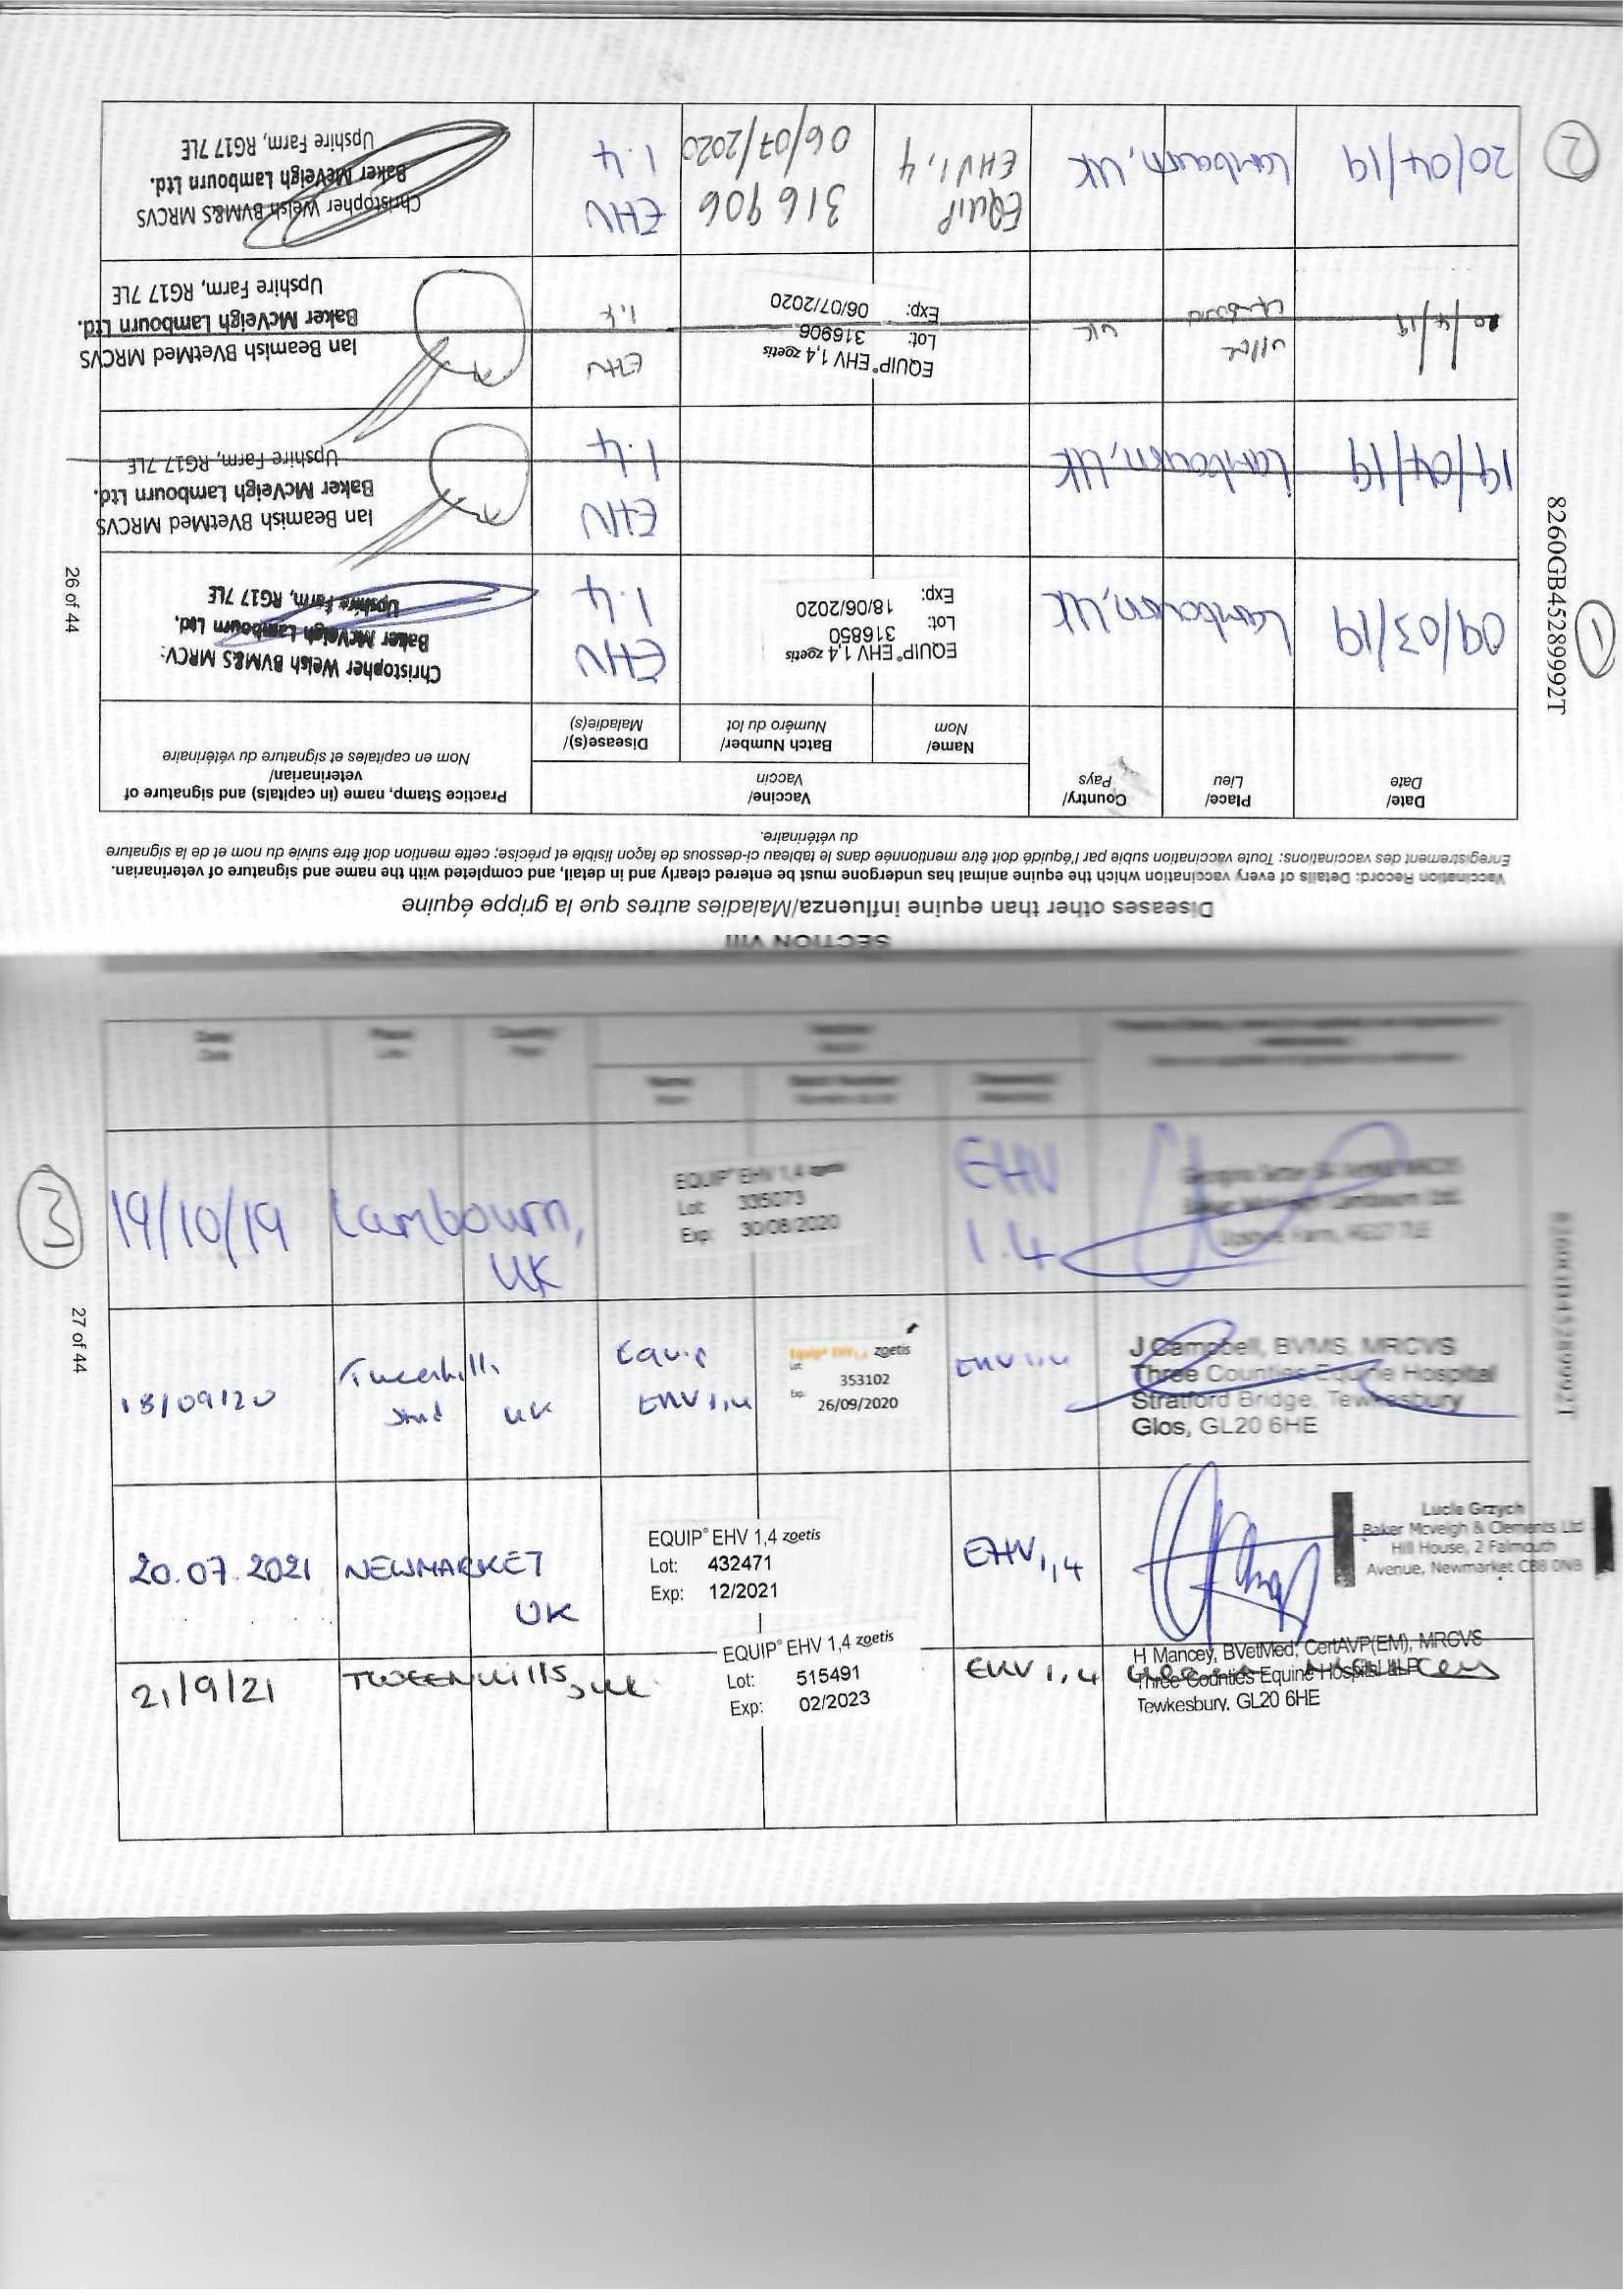 SECTION VIII
Diseases other than equine influenza/Maladies autres que la grippe équine
Vaccination Record: Details of every vaccination which the equine animal has undergone must be entered clearly and in detail, and completed with the name and signature of veterinarian.
Enregistrement des vaccinations: Toute vaccination subie par l'équidé doit être mentionnée dans le tableau ci-dessous de façon lisible et précise; cette mention doit être suivie du nom et de la signature
du vétérinaire.
Date/
Date
Place/
Lieu
Country/
Pays
Vaccine/
Vaccin
Name/
Nom
Batch Number/
Numéro du lot
Disease(s)/
Maladie(s)
Practice Stamp, name (in capitals) and signature of
veterinarian/
Nom en capitales et signature du vétérinaire
1
09/03/19
Lambourn, UK
EQUIP® EHV 1,4 zoetis
Lot: 316850
Exp: 18/06/2020
EHV
1.4
Christopher Welsh BVM&S MRCV
Baker McVeigh Lambourn Ltd.
Upshire Farm, RG17 7LE
19/04/19
Lambourn, UK
EHV
1.4
Ian Beamish BVetMed MRCVS
Baker McVeigh Lambourn Ltd.
Upshire Farm, RG17 7LE
20/4/19
UK
EQUIP® EHV 1,4 zoetis
Lot: 316906
Exp: 06/07/2020
EHV
1.4
Ian Beamish BVetMed MRCVS
Baker McVeigh Lambourn Ltd.
Upshire Farm, RG17 7LE
2
20/04/19
Lambourn, UK
EQUIP
EHV 1,4
316906
06/07/2020
EHV
1.4
Christopher Welsh BVM&S MRCVS
Baker McVeigh Lambourn Ltd.
Upshire Farm, RG17 7LE
8260GB45289992T
26 of 44
3
19/10/19
Lambourn,
UK
EQUIP® EHV 1,4 zoetis
Lot: 335073
Exp: 30/08/2020
EHV
1.4
Baker McVeigh Lambourn Ltd.
Upshire Farm, RG17 7LE
18/09/20
Tweenhills
Stud
UK
Equip
EHV 1,4
Equip® EHV 1,4 zoetis
Lot 353102
Exp. 26/09/2020
EHV 1,4
J Campbell, BVMS, MRCVS
Three Counties Equine Hospital
Stratford Bridge, Tewkesbury
Glos, GL20 6HE
20.07.2021
NEWMARKET
UK
EQUIP® EHV 1,4 zoetis
Lot: 432471
Exp: 12/2021
EHV 1,4
Lucie Grzych
Baker Mcveigh & Clements Ltd
Hill House, 2 Falmouth
Avenue, Newmarket CB8 0NB
21/9/21
TWEENHILLS, UK
EQUIP® EHV 1,4 zoetis
Lot: 515491
Exp: 02/2023
EHV 1,4
H Mancey, BVetMed, CertAVP(EM), MRCVS
Three Counties Equine Hospital LLP
Tewkesbury. GL20 6HE
27 of 44